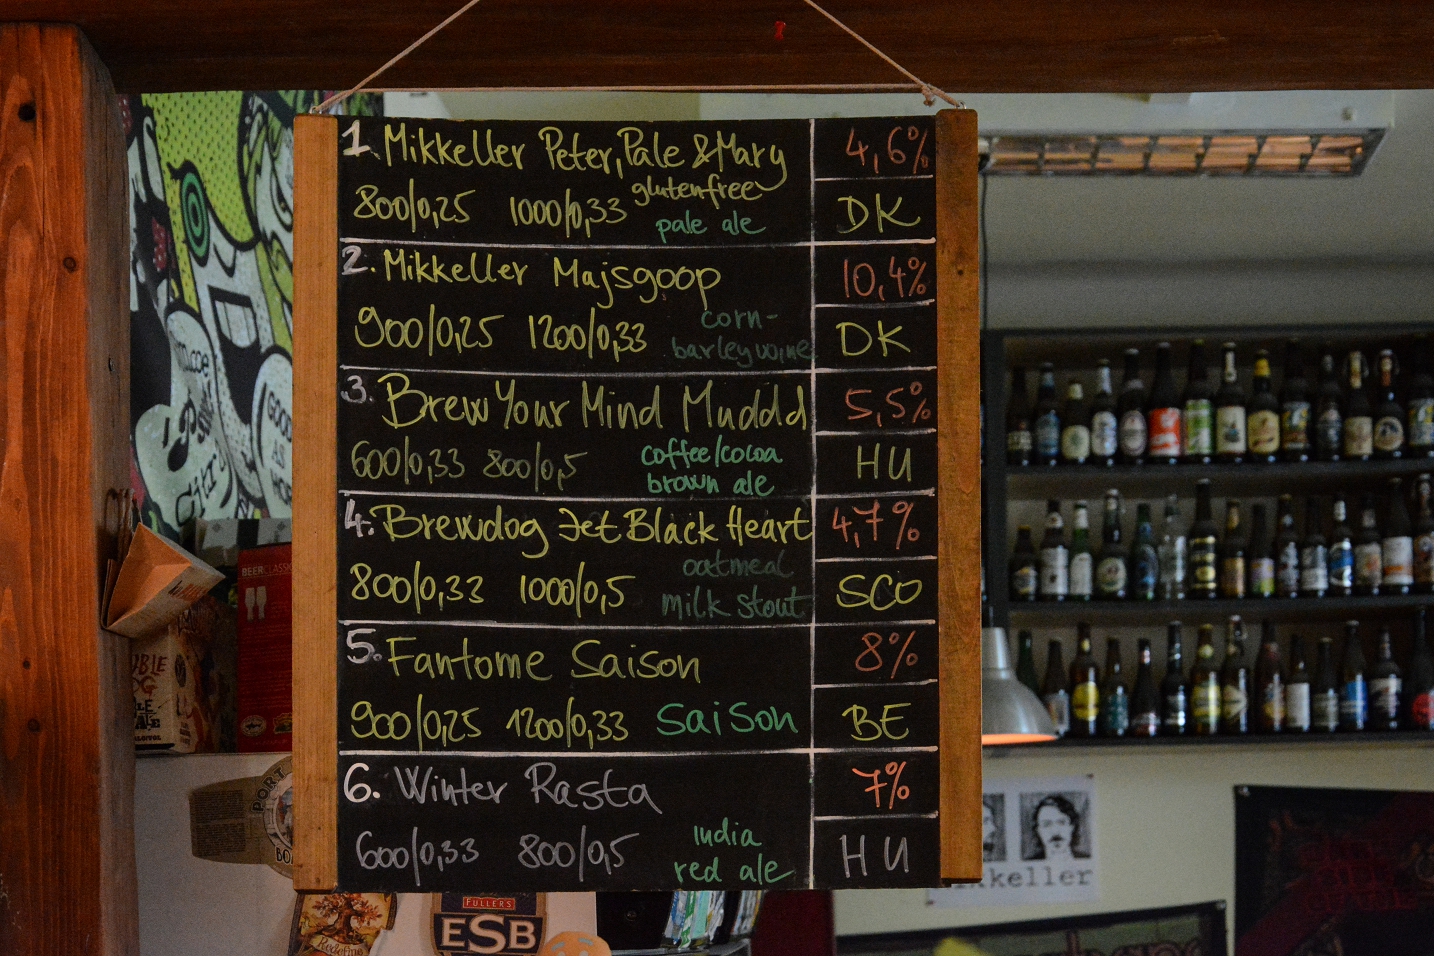 1. Mikkeller Peter, Pale & Mary 4,6%
glutenfree
800/0,25 1000/0,33 pale ale DK
2. Mikkeller Majsgoop 10,4%
corn-
900/0,25 1200/0,33 barleywine DK
3. Brew Your Mind Muddd 5,5%
600/0,33 800/0,5 coffee/cocoa HU
brown ale
4. Brewdog Jet Black Heart 4,7%
oatmeal
800/0,33 1000/0,5 milk stout SCO
5. Fantome Saison 8%
900/0,25 1200/0,33 Saison BE
6. Winter Rasta 7%
india
600/0,33 800/0,5 red ale HU
BEERCLASSIC
PORT
FULLERS
ESB
Redefine
ikkeller